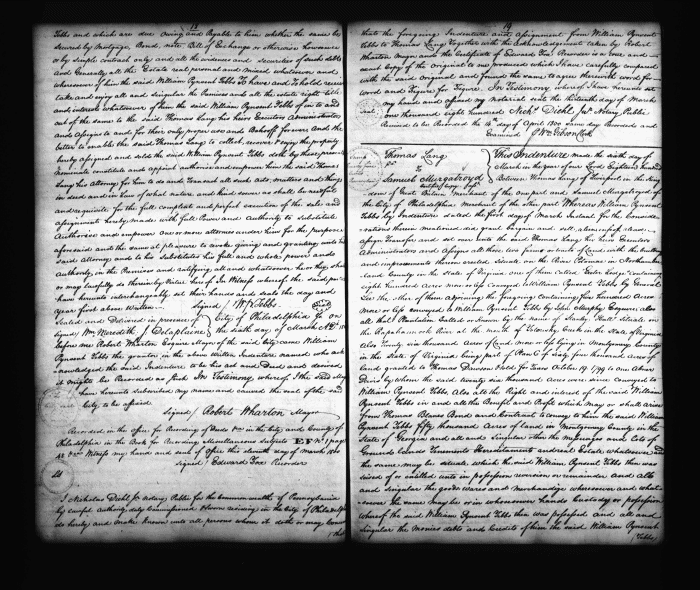 13
Tebbs and which are due owing and Payable to him whether the same be
Secured by Mortgage, Bond, note, Bill of Exchange or otherwise howsoever
or by Simple contract only and all the evidences and securities of such debts
and Generally all the Estate real personal and mixed whatsoever and
wheresoever of him the said William Pynsent Tebbs To have and to hold receive
take and enjoy all and Singular the Premises and all the estate right title
and interest whatsoever of him the said William Pynsent Tebbs of in to and
out of the same to the said Thomas Lang his heirs Executors Administrators
and Assigns to and for their only proper use and Behoof forever And the
better to enable the said Thomas Lang to collect, recover & enjoy the property
hereby assigned and sold the said William Pynsent Tebbs doth by these presents
nominate constitute and appoint authorise and empower him the said Thomas
Lang his attorney for him to do and Transact all such acts matters and things
in deed and in law of what nature and kind soever as shall be needful
and requisite for the full compleat and perfect execution of the sale and
assignment hereby made with full Power and Authority to substitute
Authorise and empower one or more attornies under him for the purpose
aforesaid and the same at pleasure to revoke giving and granting unto his
said Attorney and to his Substitutes his full and whole power and
Authority in the Premises and ratifying all and whatsoever he or they shall
or may lawfully do therein by Virtue hereof In Witness whereof the said parties
have hereunto interchangeably set their hands and seals the day and
year first above written
signed / Wm P Tebbs
Sealed and Delivered in presence of City of Philadelphia Ss on
signed / Wm Meredith J. Delaplaine the sixth day of March AD 1800
before me Robert Wharton Esquire Mayor of the said City came William
Pynsent Tebbs the grantor in the above written Indenture named who ack
nowledged the said Indenture to be his act and Deed and desired
it might be Recorded as such In Testimony whereof I the said Mayor
have hereunto subscribed my name and caused the seal of the said
City to be affixed
signed / Robert Wharton Mayor
Recorded in the office for Recording of Deeds &c in the City and County of
Philadelphia in the Book for Recording Miscellaneous subjects E F No 1 page
42 &c Witness my hand and seal of office this eleventh day of March 1800
signed / Edward Fox Recorder
I Nicholas Diehl Jr Notary Public for the Commonwealth of Pennsylvania
by lawful authority duly Commissioned & Sworn residing in the City of Philadelphia
do hereby and make known unto all persons whom it doth or may Concern
that
14
that the foregoing Indenture and Assignment from William Pynsent
Tebbs to Thomas Lang Together with the Acknowledgement taken by Robert
Wharton Mayor and the Certificate of Edward Fox Recorder is a true and
exact Copy of the original to me produced which I have carefully compared
with the said original and found the same to agree therewith word for
word and Figure for Figure. In Testimony whereof I have hereunto set
my hand and affixed my Notarial seal the thirteenth day of March
one thousand eight hundred Nichs Diehl Jr Notary Public
Received to be Recorded the 14th day of April 1800 same day Recorded and
Examined P Wm Gibson Clk
Thomas Lang
to
Samuel Murgatroyd
This Indenture made the sixth day of
March in the year of our Lord Eighteen hundred
Between Thomas Lang of Liverpool in the King
dom of Great Britain Merchant of the one part and Samuel Murgatroyd of
the City of Philadelphia Merchant of the other part Whereas William Pynsent
Tebbs by Indenture dated the first day of March Instant for the Conside
rations therein mentioned did grant bargain and sell, alien enfeoff release
assign Transfer and set over unto the said Thomas Lang his heirs Executors
Administrators and Assigns all those two farms or tracts of Land with the buildings
and improvements thereon erected Situate on the River Potomac in Northumber
land County in the State of Virginia one of them called Exeter Lodge Containing
eight hundred Acres more or less conveyed to William Pynsent Tebbs by General
Lee the other of them adjoining the foregoing Containing five hundred Acres
more or less conveyed to William Pynsent Tebbs by John Murphy Esquire also
all that Plantation Called or known by the name of Stanley Hall Situate on
the Rappahannock River at the mouth of Totuskey Creek in the State of Virginia
Also Twenty six thousand Acres of Land more or less lying in Montgomery County
in the State of Virginia being part of Plan C of sixty four thousand acres of
land granted to Thomas Dawson & Sold for Taxes October 19 1799 to one Abner
Davis by whom the said twenty six thousand Acres were since Conveyed to
William Pynsent Tebbs. Also all the Right and interest of the said William
Pynsent Tebbs in and all the Benefit and Profit which may or shall arise
from Thomas Blanes Bond and Contract to convey to him the said William
Pynsent Tebbs fifty thousand Acres of land in Montgomery County in the
State of Georgia and all and Singular other the messuages and Lots of
Grounds Lands Tenements Hereditaments and real Estate whatsoever and
the same may be situate which the said William Pynsent Tebbs then was
seized of or entitled unto in possession reversion or remainder And also
and Singular the goods wares and Merchandizes wheresoever and what
soever the same may be or in whosesoever hands Custody or possession
whereof the said William Pynsent Tebbs then was possessed and all and
Singular the Monies debts and Credits of him the said William Pynsent
(Tebbs)